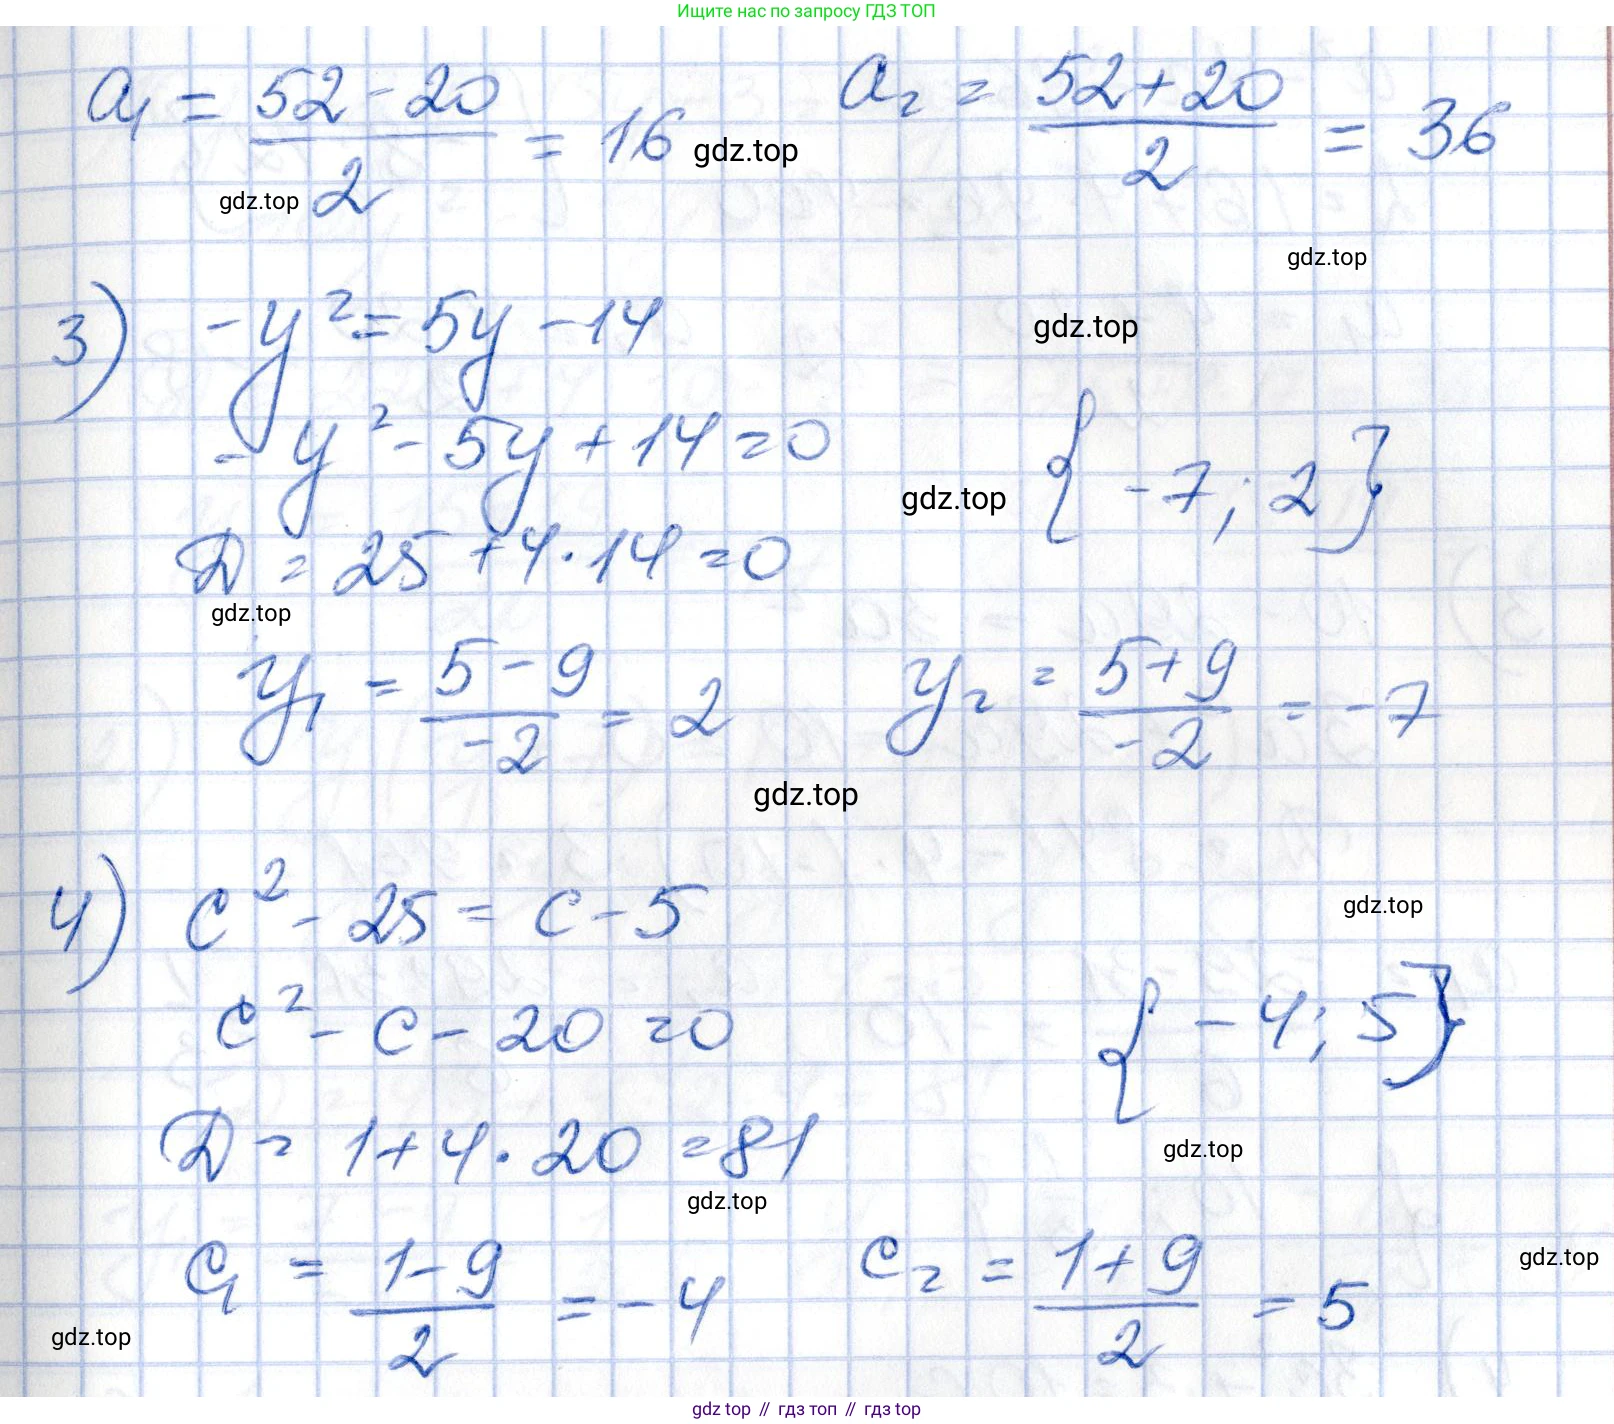 Ищите нас по запросу ГДЗ ТОП
a₁ = (52 - 20)/2 = 16 gdz.top a₂ = (52 + 20)/2 = 36
gdz.top
gdz.top
3) -y² = 5y - 14 gdz.top
-y² - 5y + 14 = 0
gdz.top {-7; 2}
D = 25 + 4 · 14 = 0
gdz.top
y₁ = (5 - 9)/-2 = 2 y₂ = (5 + 9)/-2 = -7
gdz.top
4) c² - 25 = c - 5 gdz.top
c² - c - 20 = 0 {-4; 5}
D = 1 + 4 · 20 = 81 gdz.top
gdz.top
c₁ = (1 - 9)/2 = -4 c₂ = (1 + 9)/2 = 5 gdz.top
gdz.top
gdz top // гдз топ // гдз top